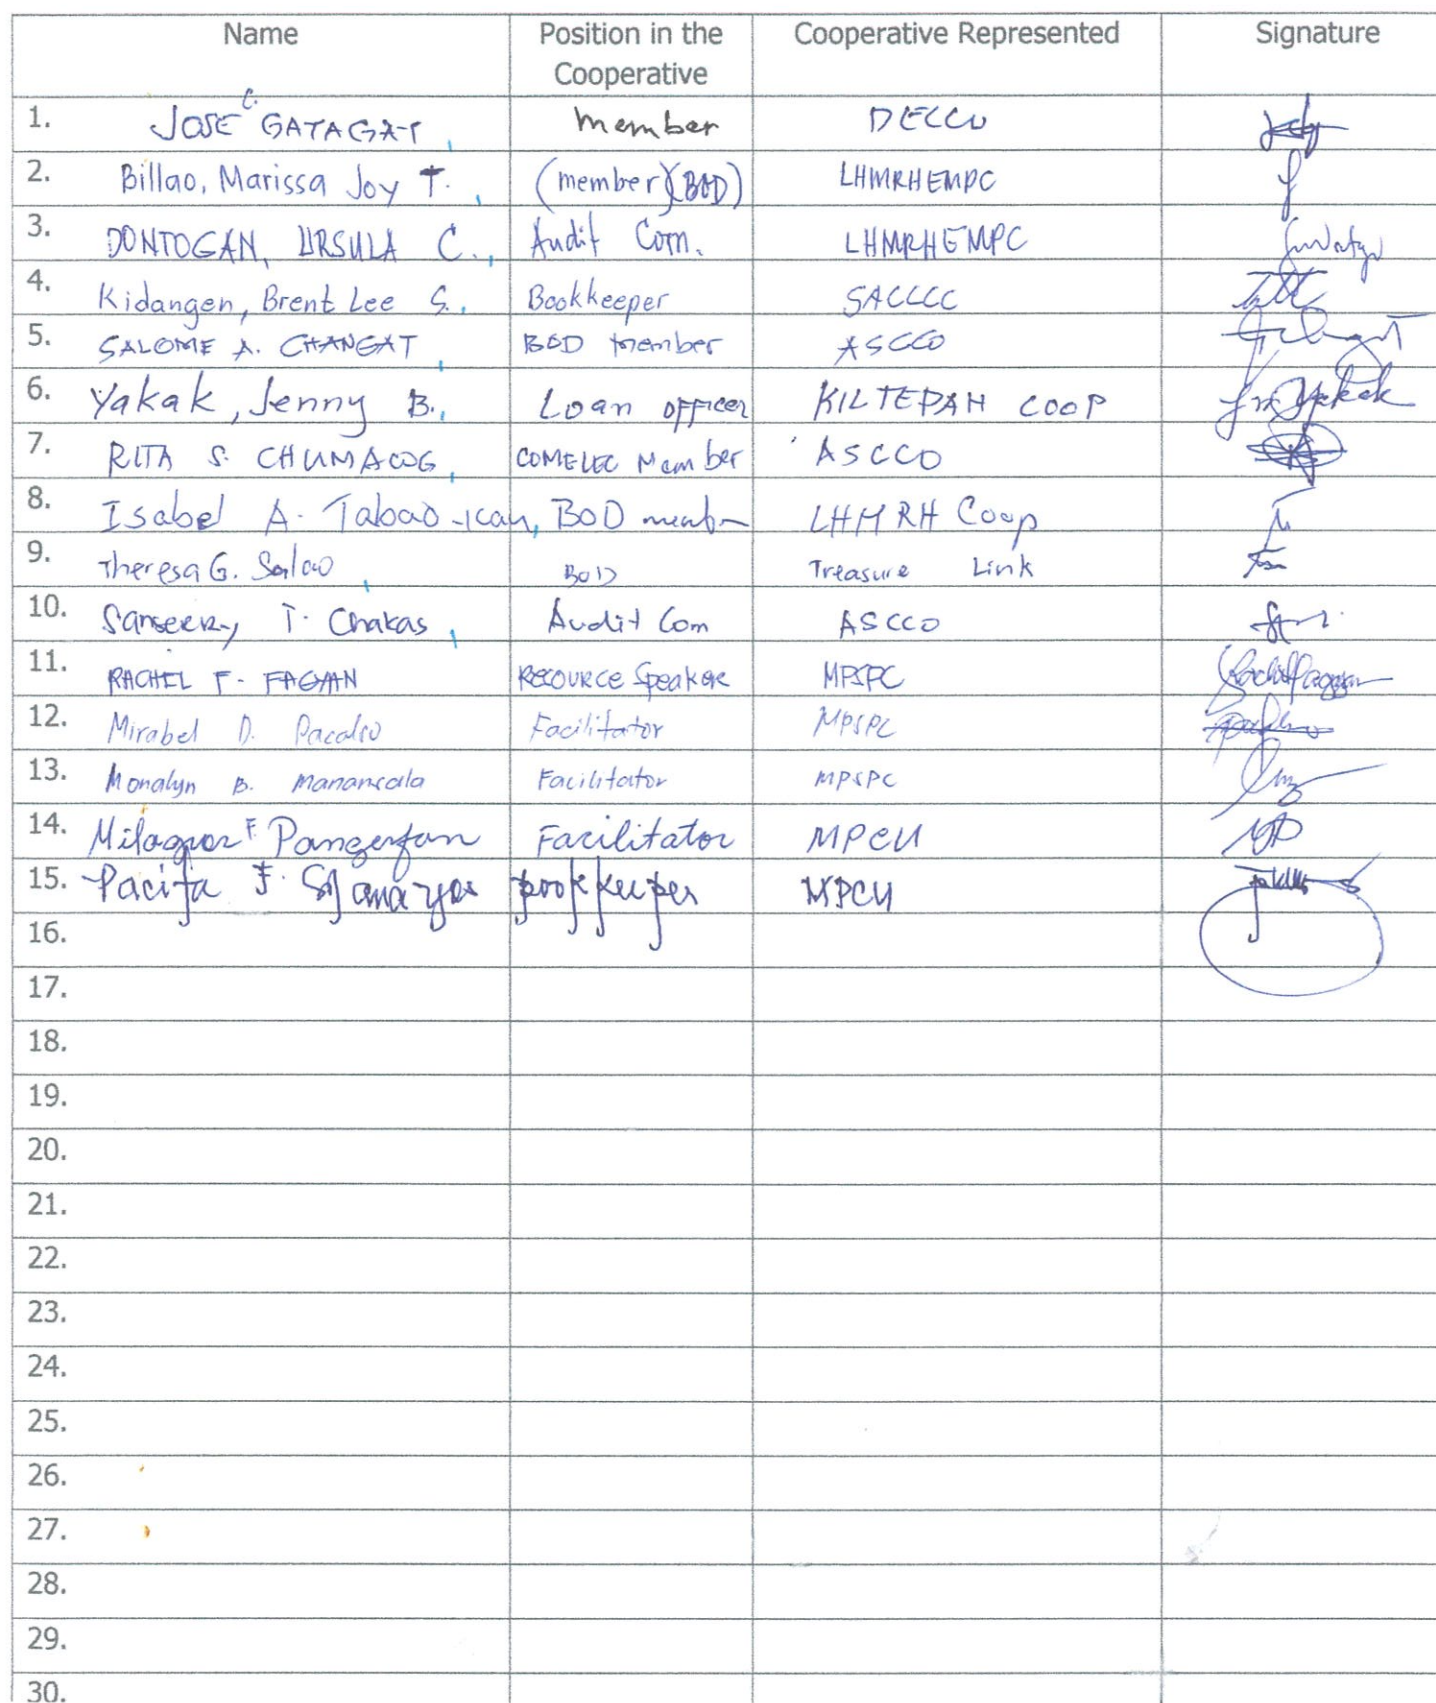 Name Position in the Cooperative Cooperative Represented Signature
1. JOSE C. GATAGAT, member DECCO
2. Billao, Marissa Joy T., (member)(BOD) LHMRHEMPC
3. DONTOGAN, URSULA C., Audit Com. LHMRHEMPC
4. Kidangen, Brent Lee S., Bookkeeper SACCCC
5. SALOME A. CHANGAT, BOD member ASCCO
6. Yakak, Jenny B., Loan officer KILTEPAN COOP
7. RITA S. CHUMACOG, COMELEC Member ASCCO
8. Isabel A. Tabao-ican, BOD member LHMRH Coop
9. Theresa G. Salao, BOD Treasure Link
10. T. Chakas, Audit Com ASCCO
11. RACHEL F. FAGYAN RESOURCE Speaker MPSPC
12. Mirabel D. Pacalso Facilitator MPSPC
13. Monalyn B. Manansala Facilitator MPSPC
14. Milagros F. Facilitator MPCU
15. Pacita F. bookkeeper MPCU
16.
17.
18.
19.
20.
21.
22.
23.
24.
25.
26.
27.
28.
29.
30.